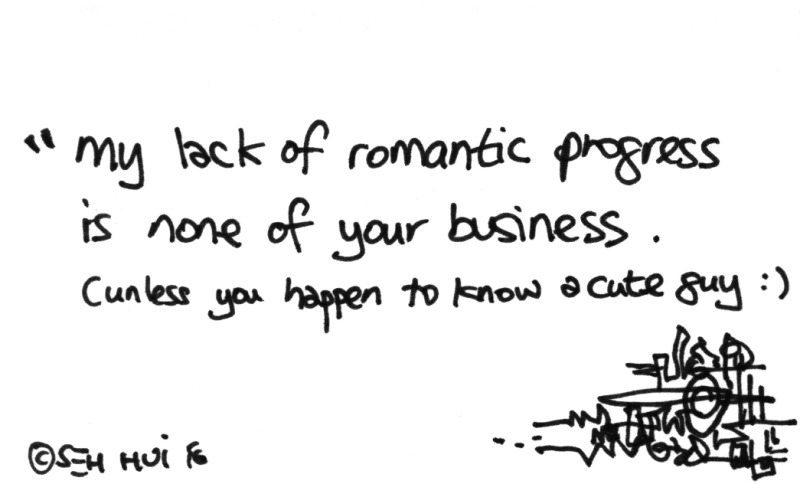 “ my lack of romantic progress
is none of your business.
(unless you happen to know a cute guy :)
© SEH HUI